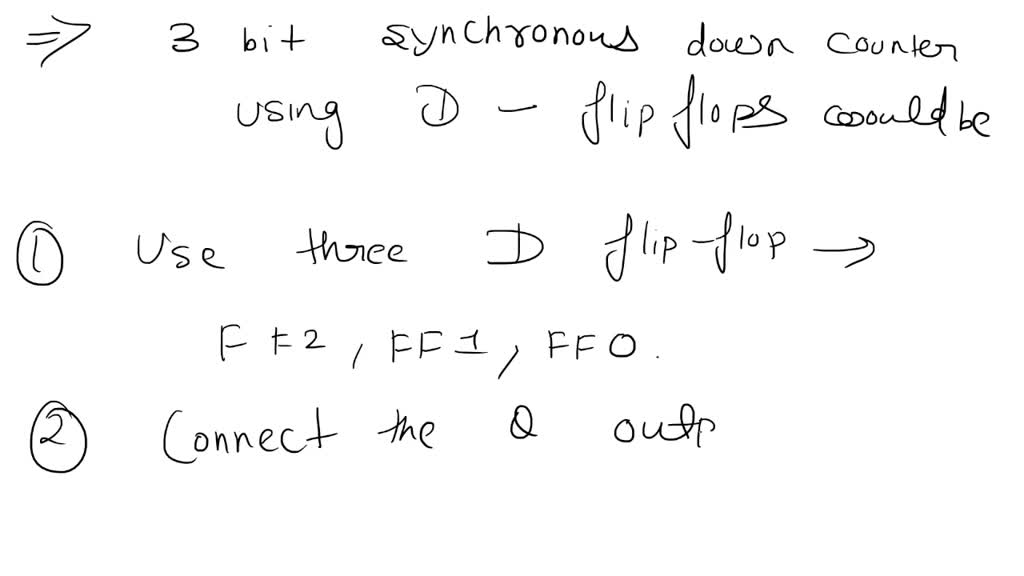 ⇒ 3 bit synchronous down counter
using D - flip flops would be
① Use three D flip-flop →
FF2, FF1, FF0.
② Connect the Q outp